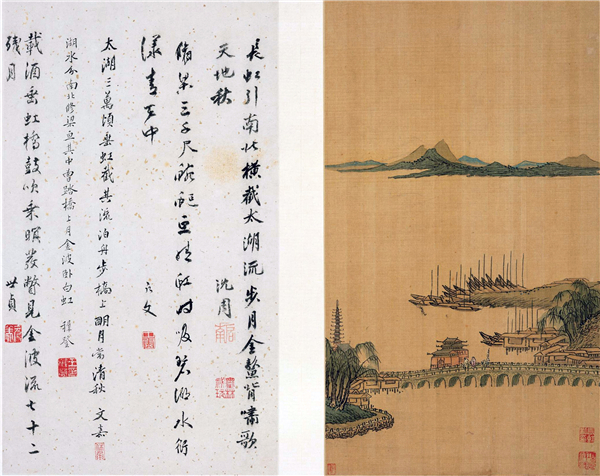 長虹引南北橫截太湖流步月金鰲背嘯歌
天地秋 沈周
脩梁三千尺蜿蜒亘晴虹時吸碧湖水衍
漾青天中
太湖三萬頃垂虹截其流泊舟步橋上明月當清秋 文嘉
湖水分南北脩梁亘其中橋上月金波卧白虹 穉登
載酒垂虹橋鼓吹乘暝發瞥見金波流七十二
殘月 世貞